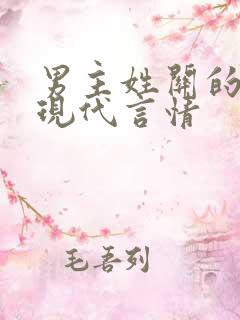 男主姓關的
現代言情
毛吾列